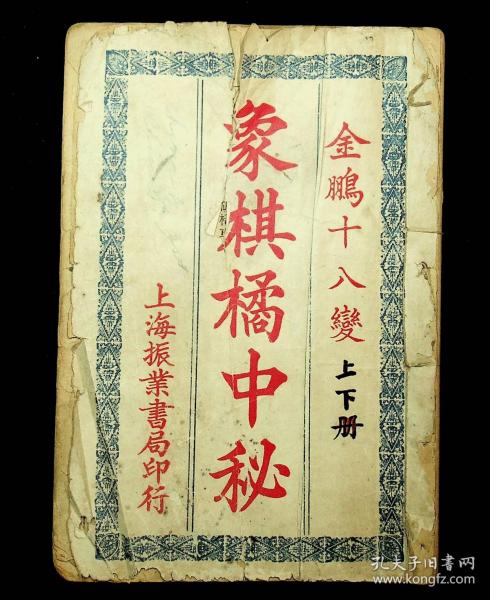 金鵬十八變
上下册
象棋橘中秘
上海振業書局印行
孔夫子旧书网
www.kongfz.com